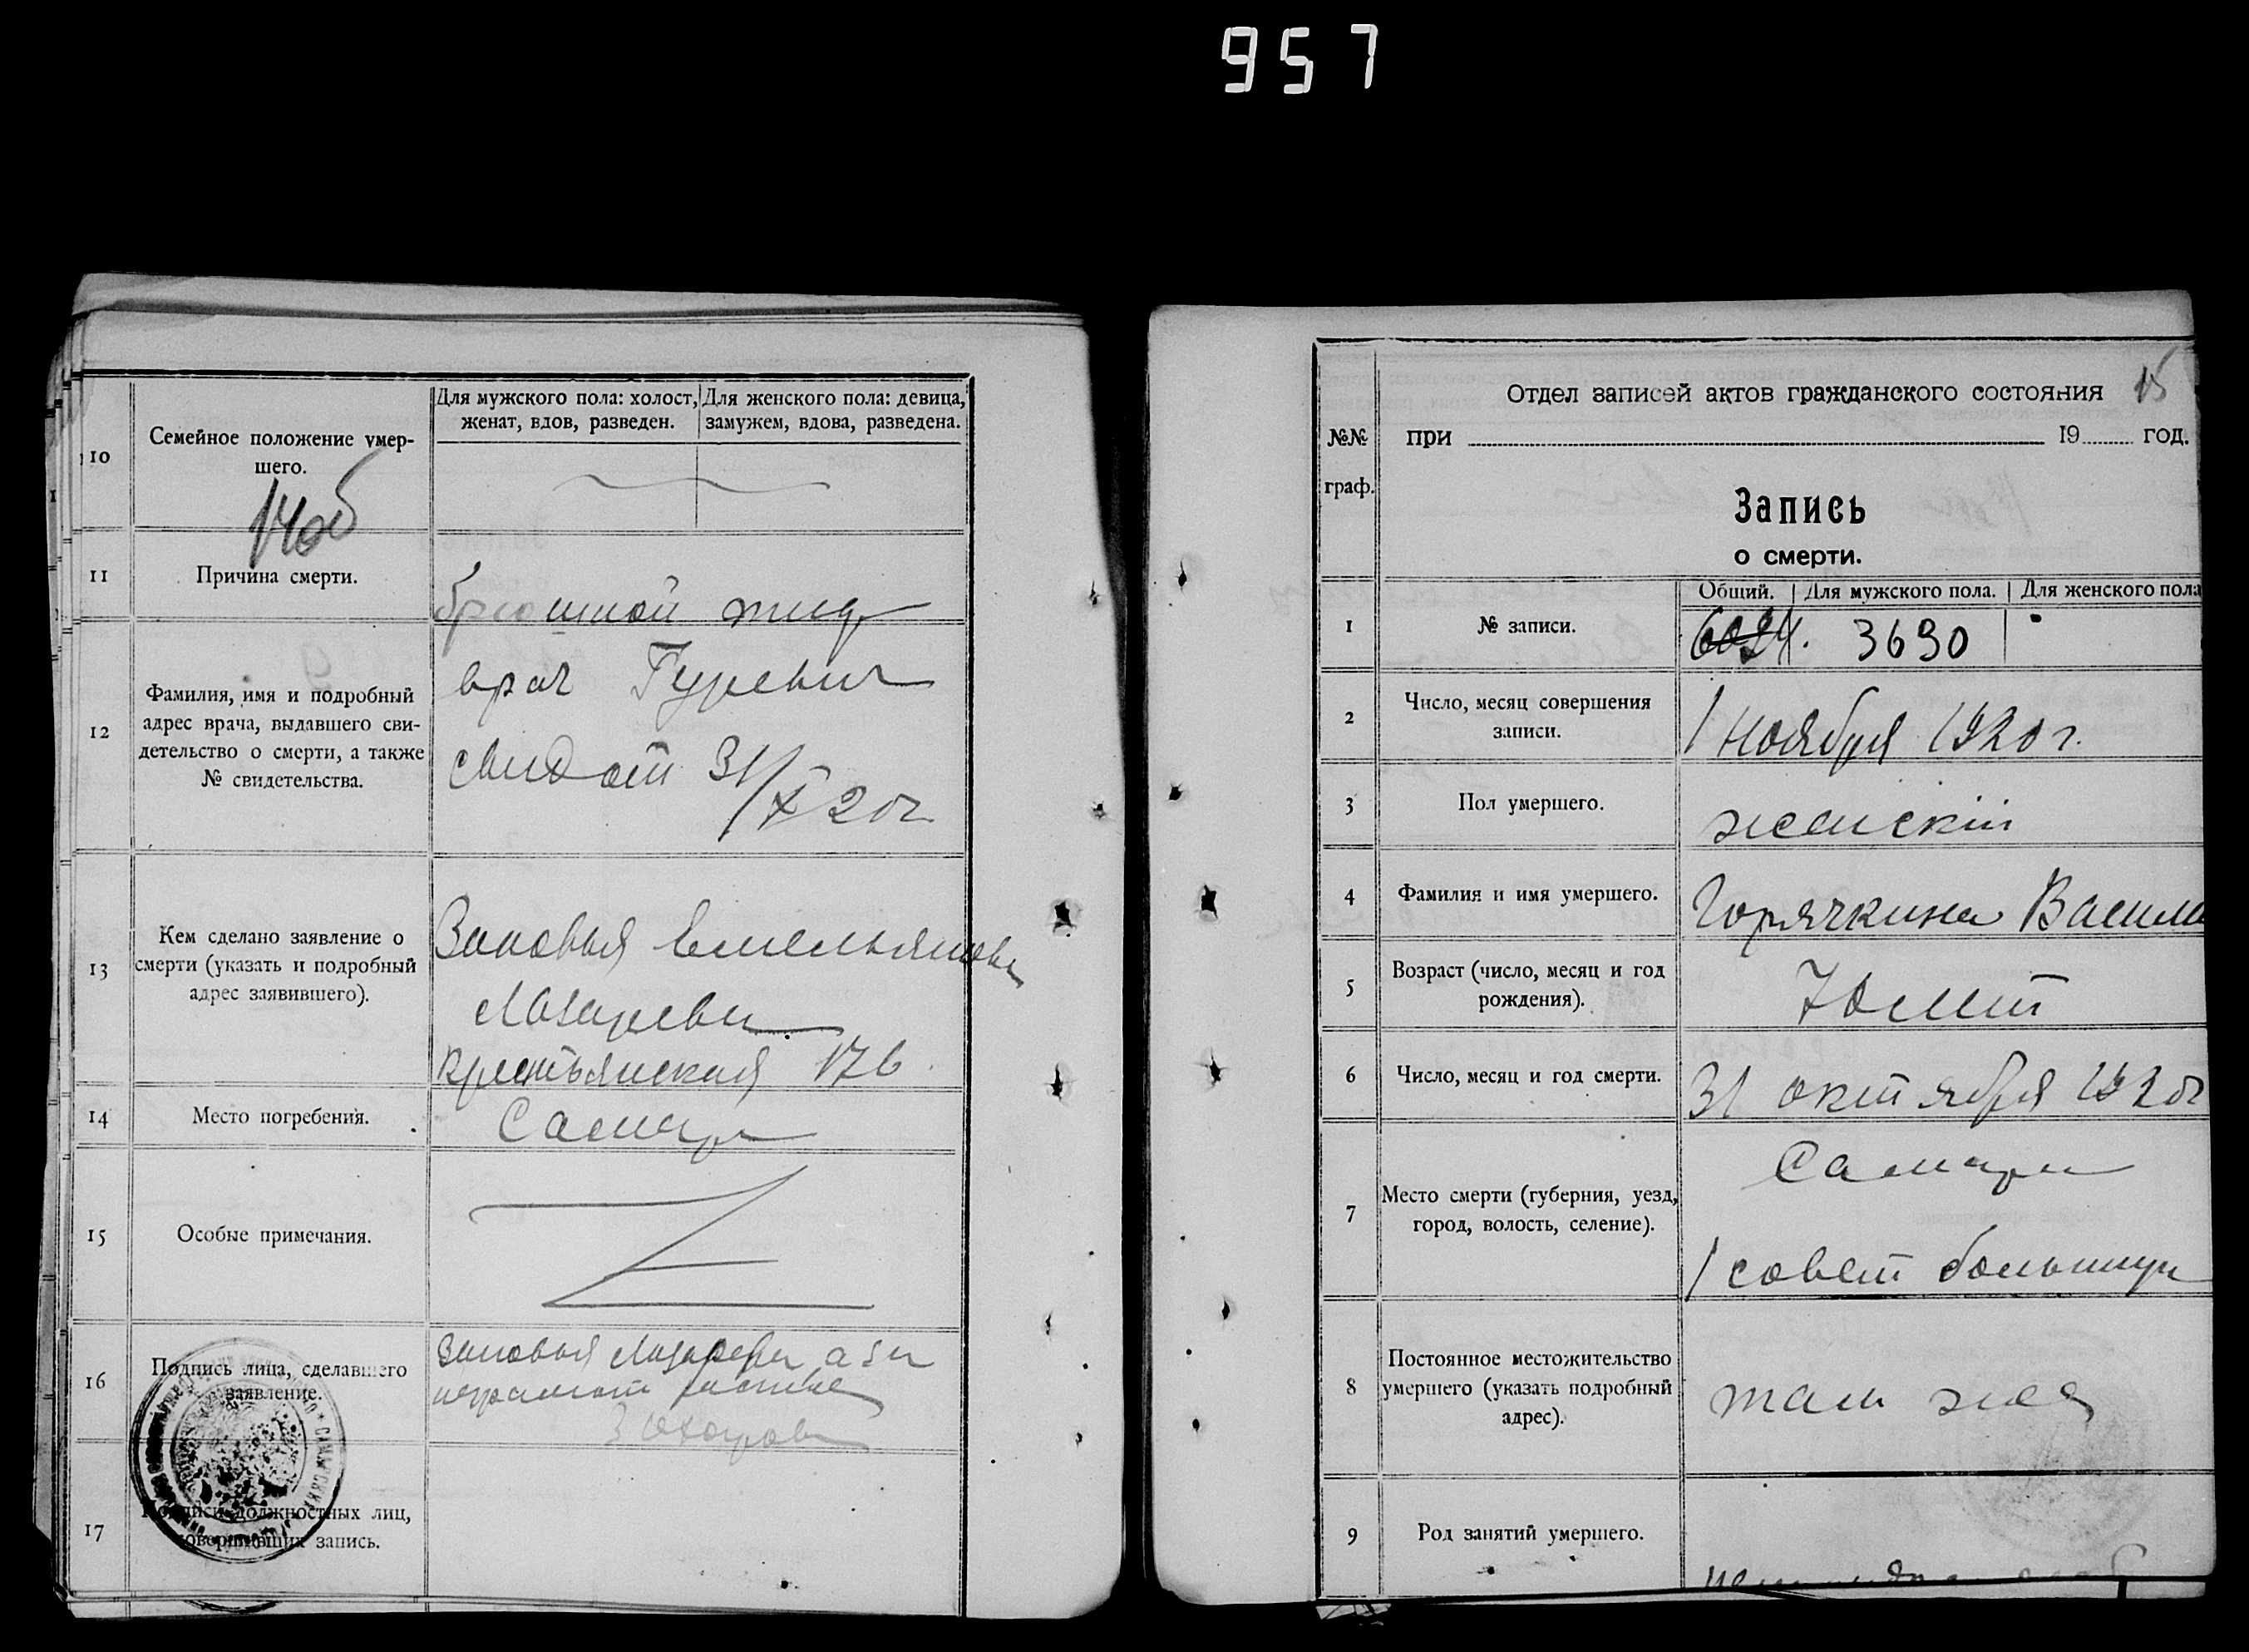 957
10
Семейное положение умер-
шего.
Для мужского пола: холост,
женат, вдов, разведен.
Для женского пола: девица,
замужем, вдова, разведена.
11
Причина смерти.
брюшной тиф
12
Фамилия, имя и подробный
адрес врача, выдавшего сви-
детельство о смерти, а также
№ свидетельства.
врач Гуревич
свид от 31/X 20 г
13
Кем сделано заявление о
смерти (указать и подробный
адрес заявившего).
Зиновья Емельянова
Лазарева
Крестьянская 176
14
Место погребения.
Самара
15
Особые примечания.
16
Подпись лица, сделавшего
заявление.
Зиновья Лазарева а за
неграмот
17
Подписи должностных лиц,
совершивших запись.
15
Отдел записей актов гражданского состояния
№№
граф.
при 19 год.
Запись
о смерти.
1
№ записи.
Общий. Для мужского пола. Для женского пола
3690
2
Число, месяц совершения
записи.
1 ноября 1920 г.
3
Пол умершего.
женский
4
Фамилия и имя умершего.
Горячкина Васили
5
Возраст (число, месяц и год
рождения).
70 лет
6
Число, месяц и год смерти.
31 октября 1920 г
7
Место смерти (губерния, уезд,
город, волость, селение).
Самара
1 совет больница
8
Постоянное местожительство
умершего (указать подробный
адрес).
там же
9
Род занятий умершего.